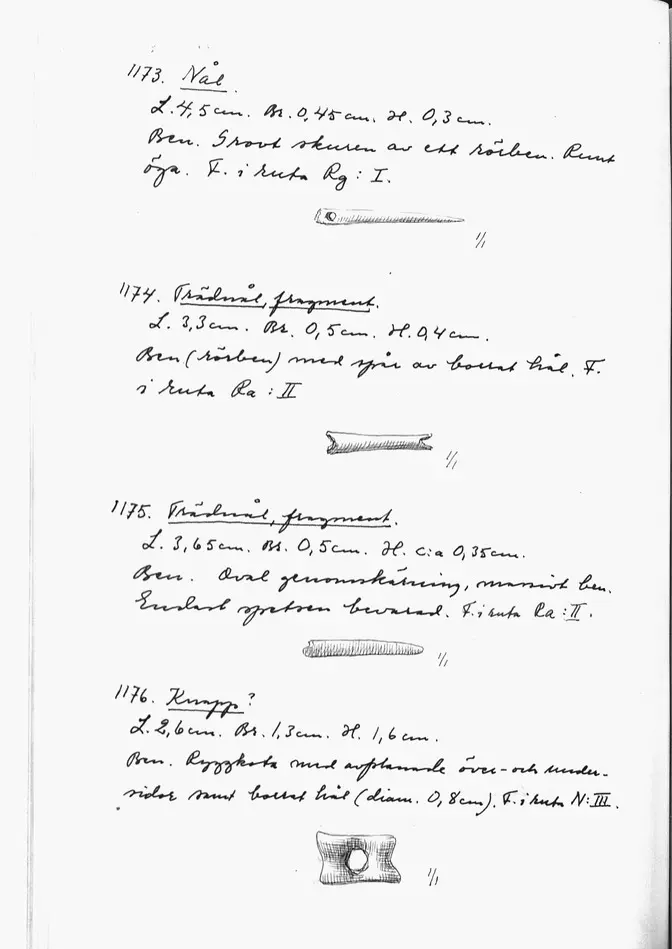 1173. Nål.
L. 4,5 cm. Br. 0,45 cm. H. 0,3 cm.
Ben. Grovt skuren av ett rörben. Runt
öga. F. i ruta Rg : I.
1/1
1174. Trädnål, fragment.
L. 3,3 cm. Br. 0,5 cm. H. 0,4 cm.
Ben (rörben) med spår av borrat hål. F.
i ruta Ra : II
1/1
1175. Trädnål, fragment.
L. 3,65 cm. Br. 0,5 cm. H. c:a 0,35 cm.
Ben. Oval genomskärning, massivt ben.
Endast spetsen bevarad. F. i ruta Ra : II.
1/1
1176. Knapp?
L. 2,6 cm. Br. 1,3 cm. H. 1,6 cm.
Ben. Ryggkota med avplanade över- och under-
sidor samt borrat hål (diam. 0,8 cm). F. i ruta N: III.
1/1